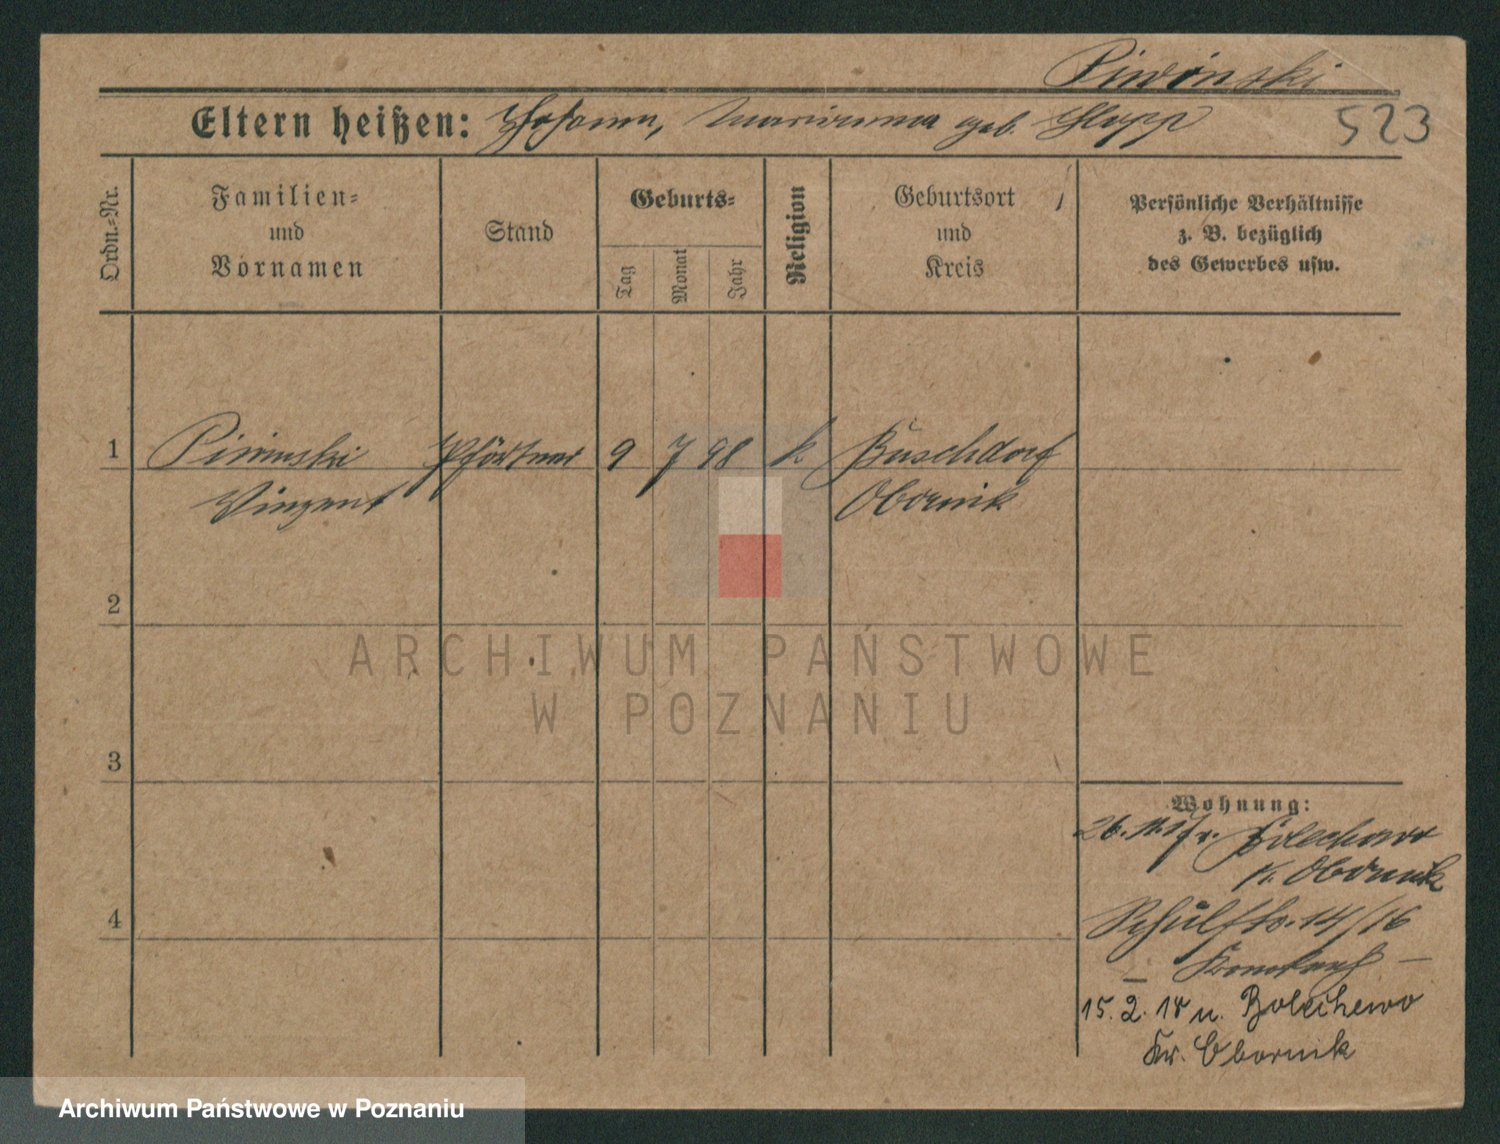 Piwinski
Eltern heißen: Johann, Marianna geb. Slapp
523
Ordn.-Nr.
Familien-
und
Vornamen
Stand
Geburts-
Tag
Monat
Jahr
Religion
Geburtsort
und
Kreis
Persönliche Verhältnisse
z. B. bezüglich
des Gewerbes usw.
1 Piwinski Pförtner 9 7 98 k Buschdorf
Vinzent Obornik
2
ARCHIWUM PAŃSTWOWE
W POZNANIU
3
Wohnung:
26. 11. 17 v. Bolechowo
K. Obornik
4
Schulstr. 14/16
15. 2. 18 n. Bolechewo
Kr. Obornik
Archiwum Państwowe w Poznaniu